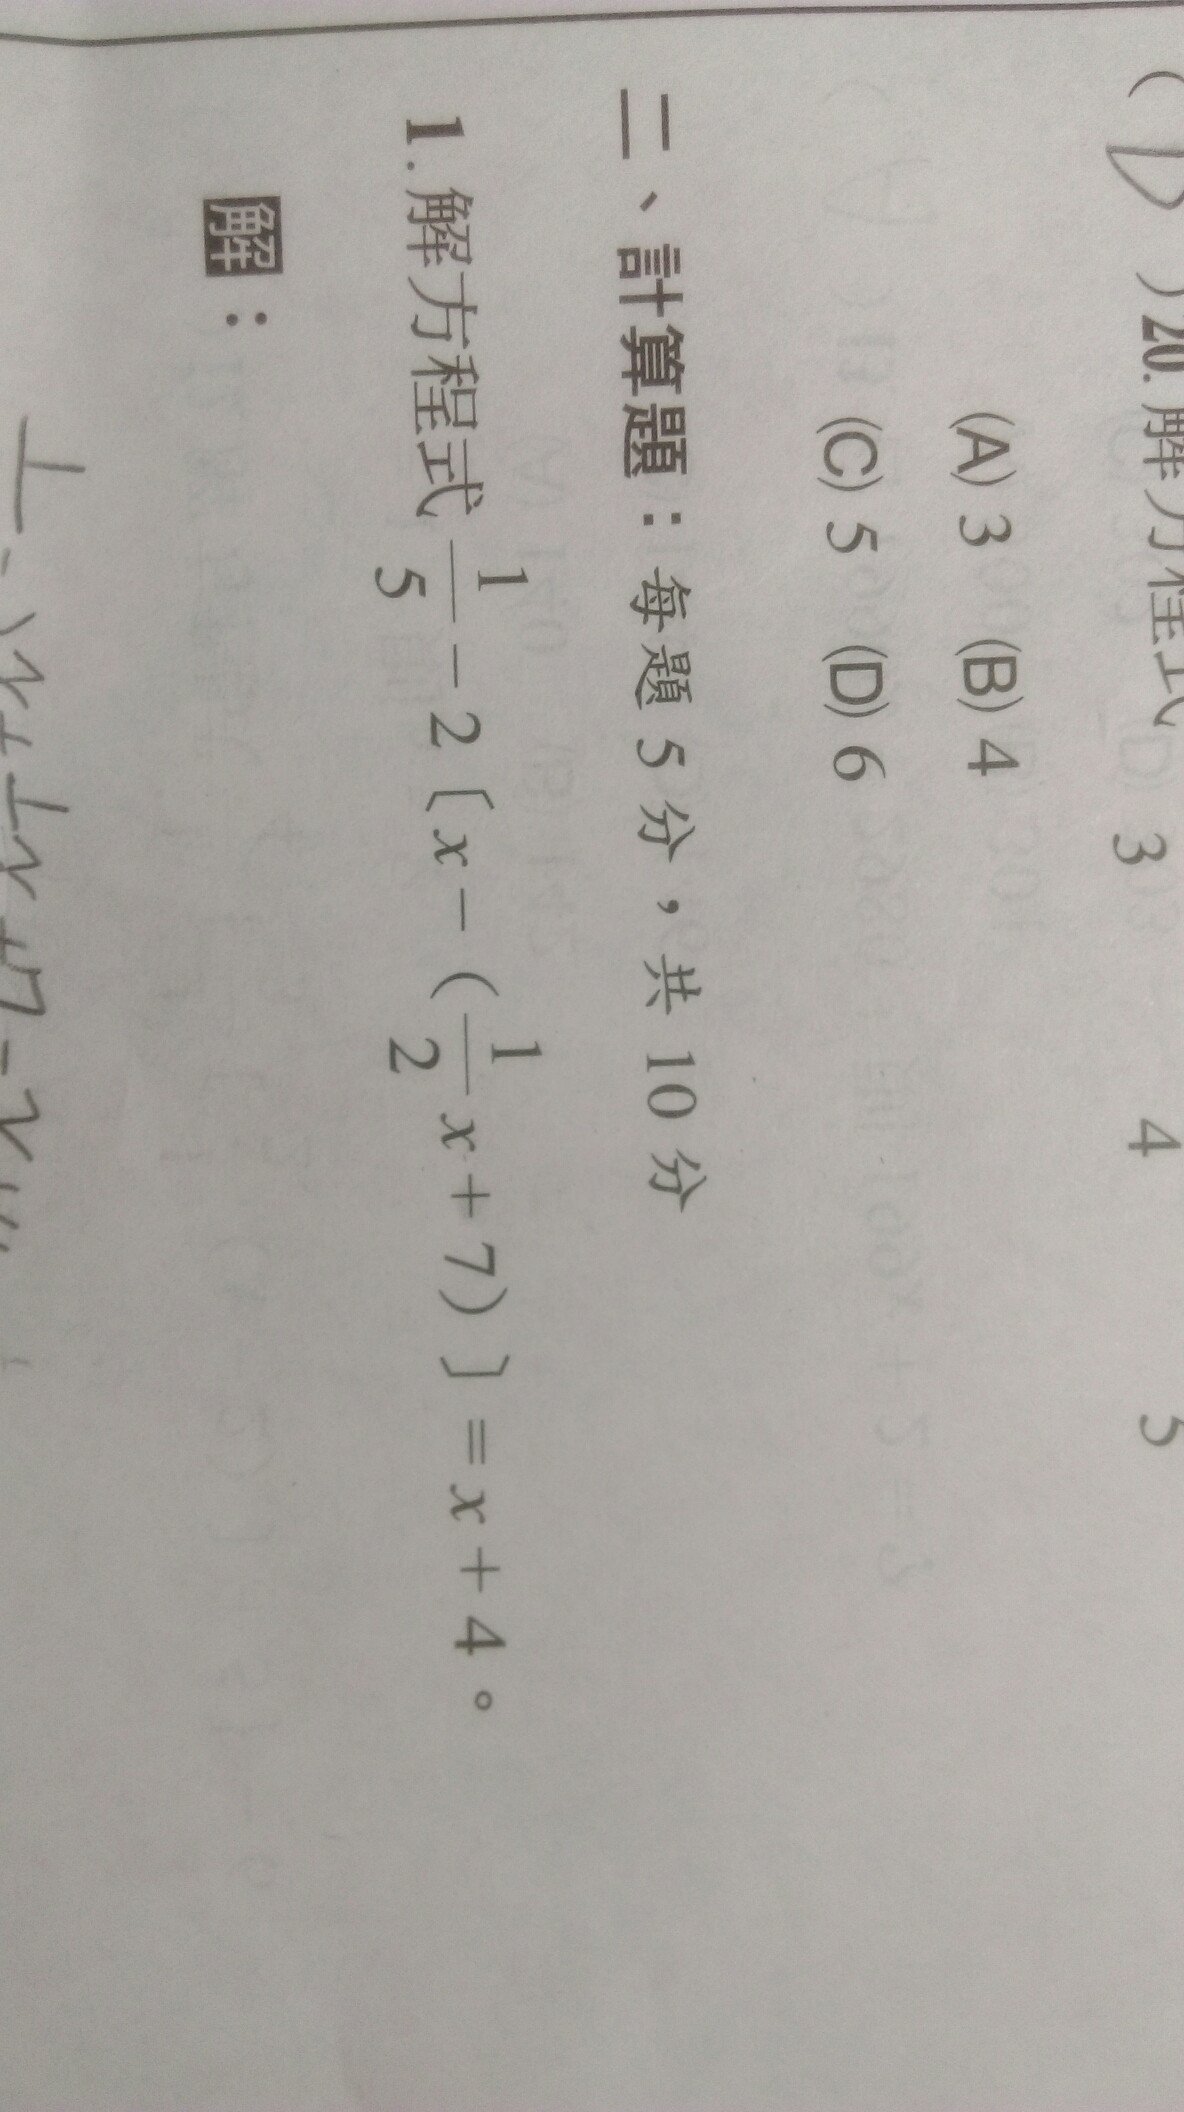 ( D ) 20. 解方程式
3 4 5
(A) 3 (B) 4
(C) 5 (D) 6
二、計算題:每題 5 分,共 10 分
1. 解方程式 1/5 − 2〔x − (1/2 x + 7)〕= x + 4。
解: